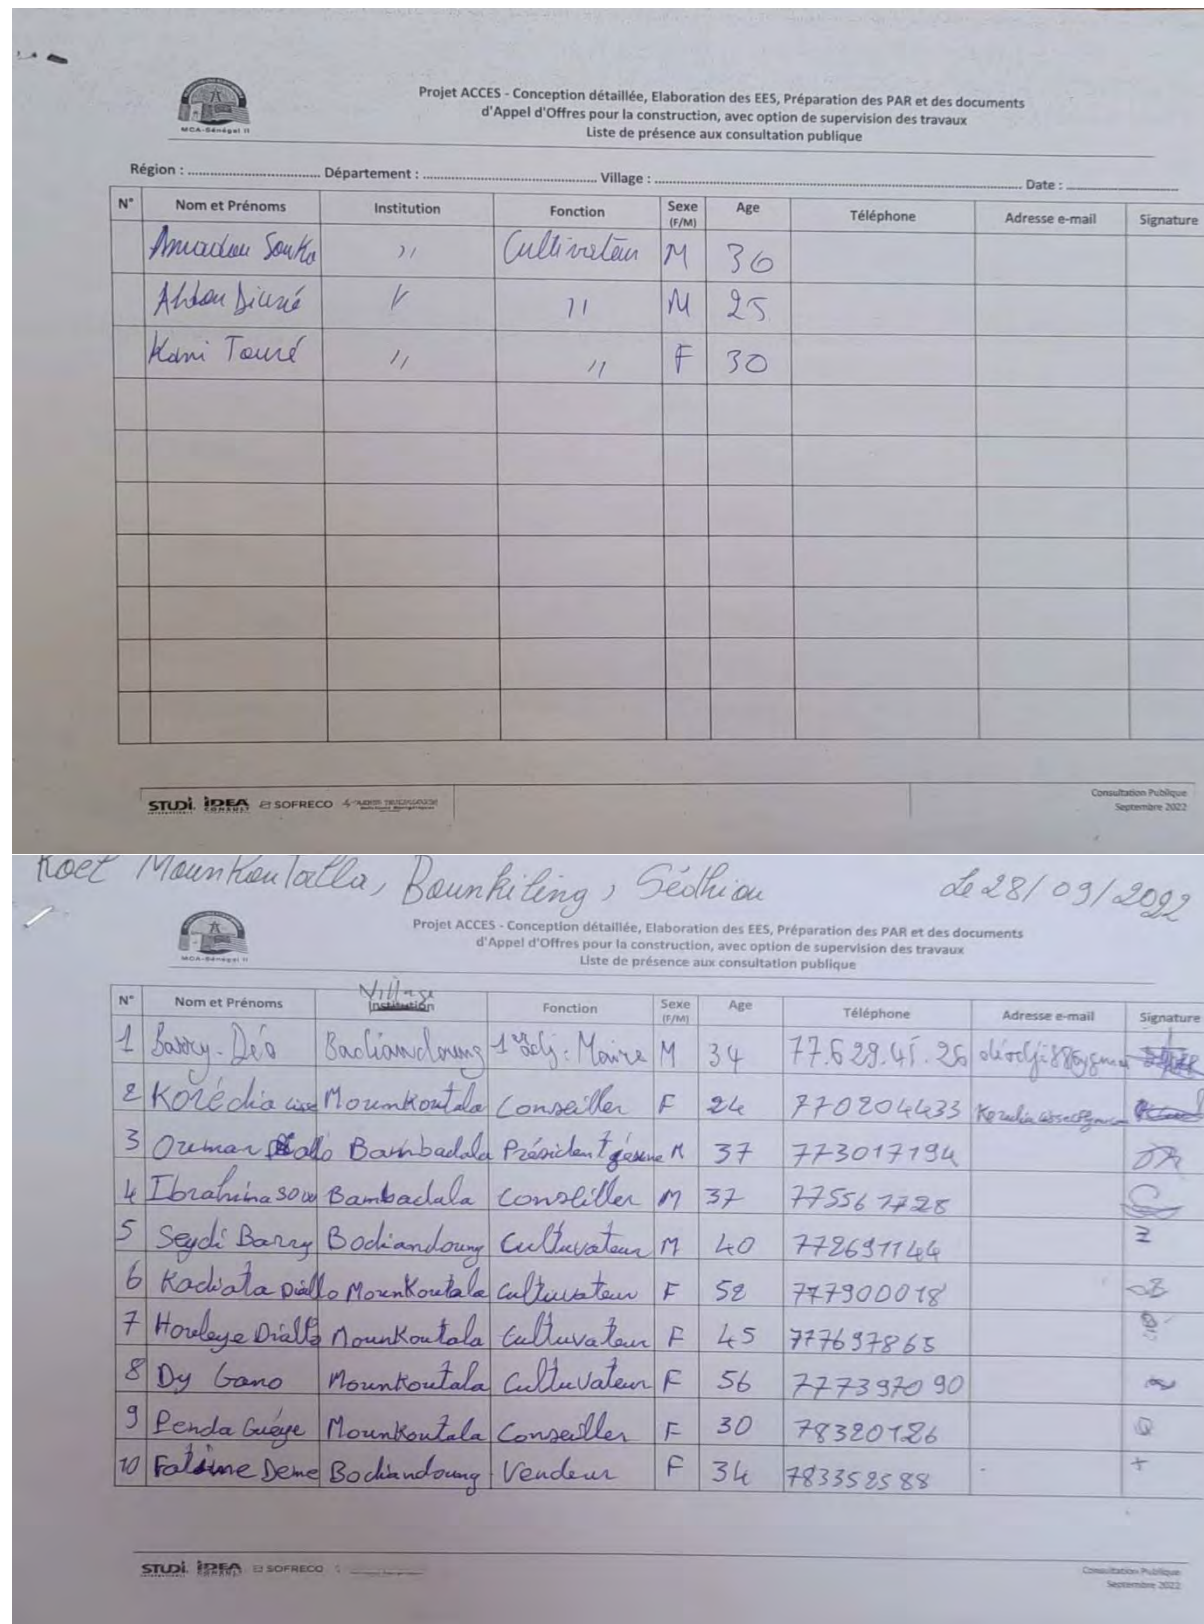 MCA-Sénégal II
Projet ACCES - Conception détaillée, Elaboration des EES, Préparation des PAR et des documents
d'Appel d'Offres pour la construction, avec option de supervision des travaux
Liste de présence aux consultation publique
Région : ................ Département : ................ Village : ................ Date : ................
N° Nom et Prénoms Institution Fonction Sexe (F/M) Age Téléphone Adresse e-mail Signature
Amadou Sonko " Cultivateur M 36
Diané " M 25
Kani Touré " " F 30
STUDI IDEA CONSULT SOFRECO
Consultation Publique
Septembre 2022
Koet Mounkoutalla, Bounkiling, Sédhiou Le 28/09/2022
MCA-Sénégal II
Projet ACCES - Conception détaillée, Elaboration des EES, Préparation des PAR et des documents
d'Appel d'Offres pour la construction, avec option de supervision des travaux
Liste de présence aux consultation publique
Village
N° Nom et Prénoms Institution Fonction Sexe (F/M) Age Téléphone Adresse e-mail Signature
1 Barry Badiandoung 1er adj: Maire M 34 77.629.41.26
2 Korédia Mounkoutala Conseiller F 24 770204433
3 Oumar Diallo Bambadala Président M 37 773017194
4 Ibrahima sow Bambadala Conseiller M 37 775561728
5 Seydi Barry Bodiandoung Cultuvateur M 40 772691144
6 Kadiata Diallo Mounkoutala Cultuvateur F 52 777900018
7 Houleye Diallo Mounkoutala Cultuvateur F 45 777697865
8 Dy Gano Mounkoutala Cultuvateur F 56 777397090
9 Penda Guéye Mounkoutala Conseiller F 30 78320126
10 Deme Bodiandoung Vendeur F 34 783352588
STUDI IDEA CONSULT SOFRECO
Consultation Publique
Septembre 2022